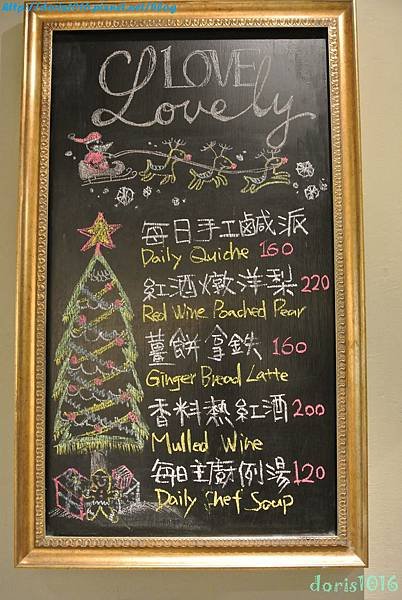 LOVE
Lovely
每日手工鹹派 160
Daily Quiche
紅酒燉洋梨 220
Red Wine Poached Pear
薑餅拿鉄 160
Ginger Bread Latte
香料熱紅酒 200
Mulled Wine
每日主廚例湯 120
Daily Chef Soup
doris1016